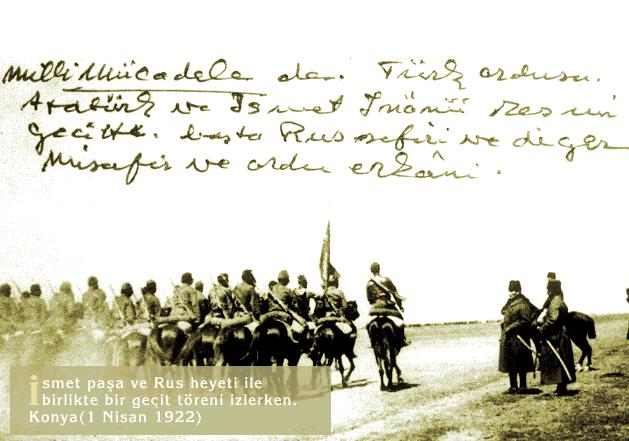 Milli Mücadele de. Türk ordusu.
Atatürk ve İsmet İnönü resmi
geçitte. başta Rus sefiri ve diğer
Misafir ve ordu erkâni.
İsmet paşa ve Rus heyeti ile
birlikte bir geçit töreni izlerken.
Konya(1 Nisan 1922)